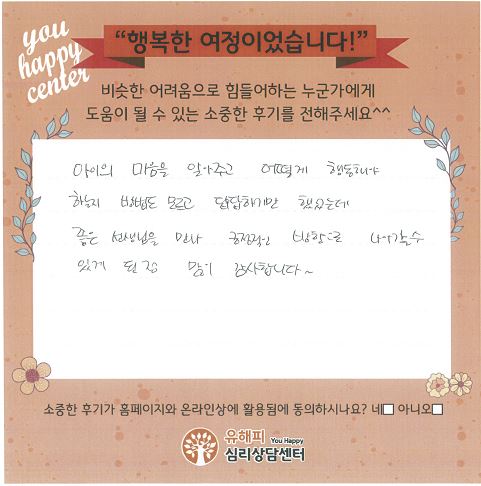 you
happy
center
“행복한 여정이었습니다!”
비슷한 어려움으로 힘들어하는 누군가에게
도움이 될 수 있는 소중한 후기를 전해주세요^^
아이의 마음을 알아주고 어떻게 행동해야
하는지 방법도 모르고 답답하기만 했었는데
좋은 선생님을 만나 긍정적인 방향으로 나아갈수
있게 된 점 많이 감사합니다~
소중한 후기가 홈페이지와 온라인상에 활용됨에 동의하시나요? 네□ 아니오□
유해피 You Happy
심리상담센터